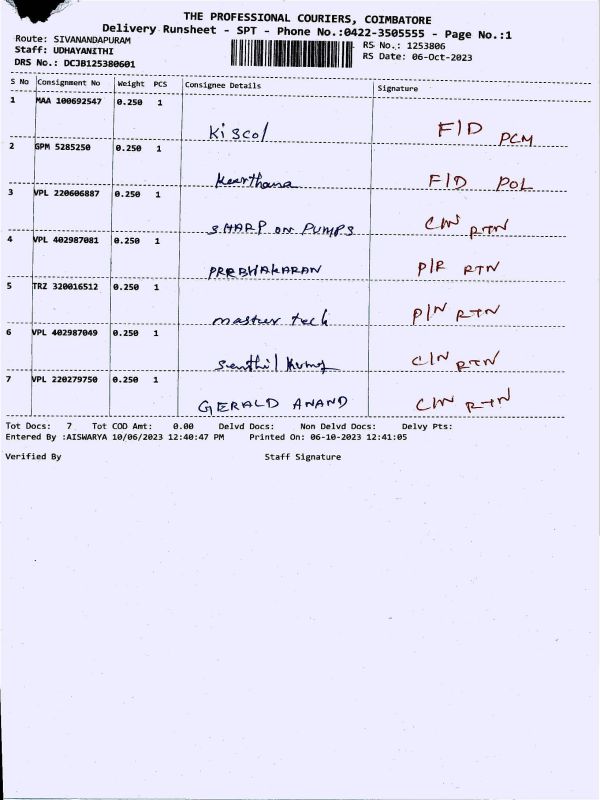 THE PROFESSIONAL COURIERS, COIMBATORE
Delivery Runsheet - SPT - Phone No.:0422-3505555 - Page No.:1
Route: SIVANANDAPURAM
RS No.: 1253806
Staff: UDHAYANITHI
RS Date: 06-Oct-2023
DRS No.: DCJB125380601
S No Consignment No Weight PCS Consignee Details Signature
1 MAA 100692547 0.250 1
Kiscol F/D PCM
2 GPM 5285250 0.250 1
Keerthana F/D POL
3 VPL 220606887 0.250 1
SHARP ON PUMPS C/N RTN
4 VPL 402987081 0.250 1
PRRBHAKARAN P/R RTN
5 TRZ 320016512 0.250 1
master tech P/N RTN
6 VPL 402987049 0.250 1
Senthil Kumar C/N RTN
7 VPL 220279750 0.250 1
GERALD ANAND C/N RTN
Tot Docs: 7 Tot COD Amt: 0.00 Delvd Docs: Non Delvd Docs: Delvy Pts:
Entered By :AISWARYA 10/06/2023 12:40:47 PM Printed On: 06-10-2023 12:41:05
Verified By Staff Signature